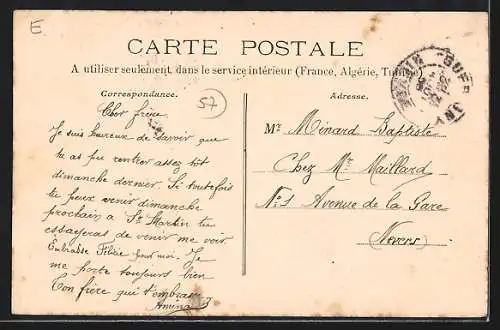 E
CARTE POSTALE
A utiliser seulement dans le service intérieur (France, Algérie, Tunisie)
Correspondance.
57
Adresse.
Cher frère
Je suis heureux de savoir que
tu as pu rentrer assez tôt
dimanche dernier. Si toutefois
tu peux venir dimanche
prochain à St Martin tu
essayeras de venir me voir
Embrasse pour moi. Je
me porte toujours bien
Ton frère qui t'embrasse
Mr Ménard Baptiste
Chez Mr Maillard
No 1 Avenue de la Gare
Nevers